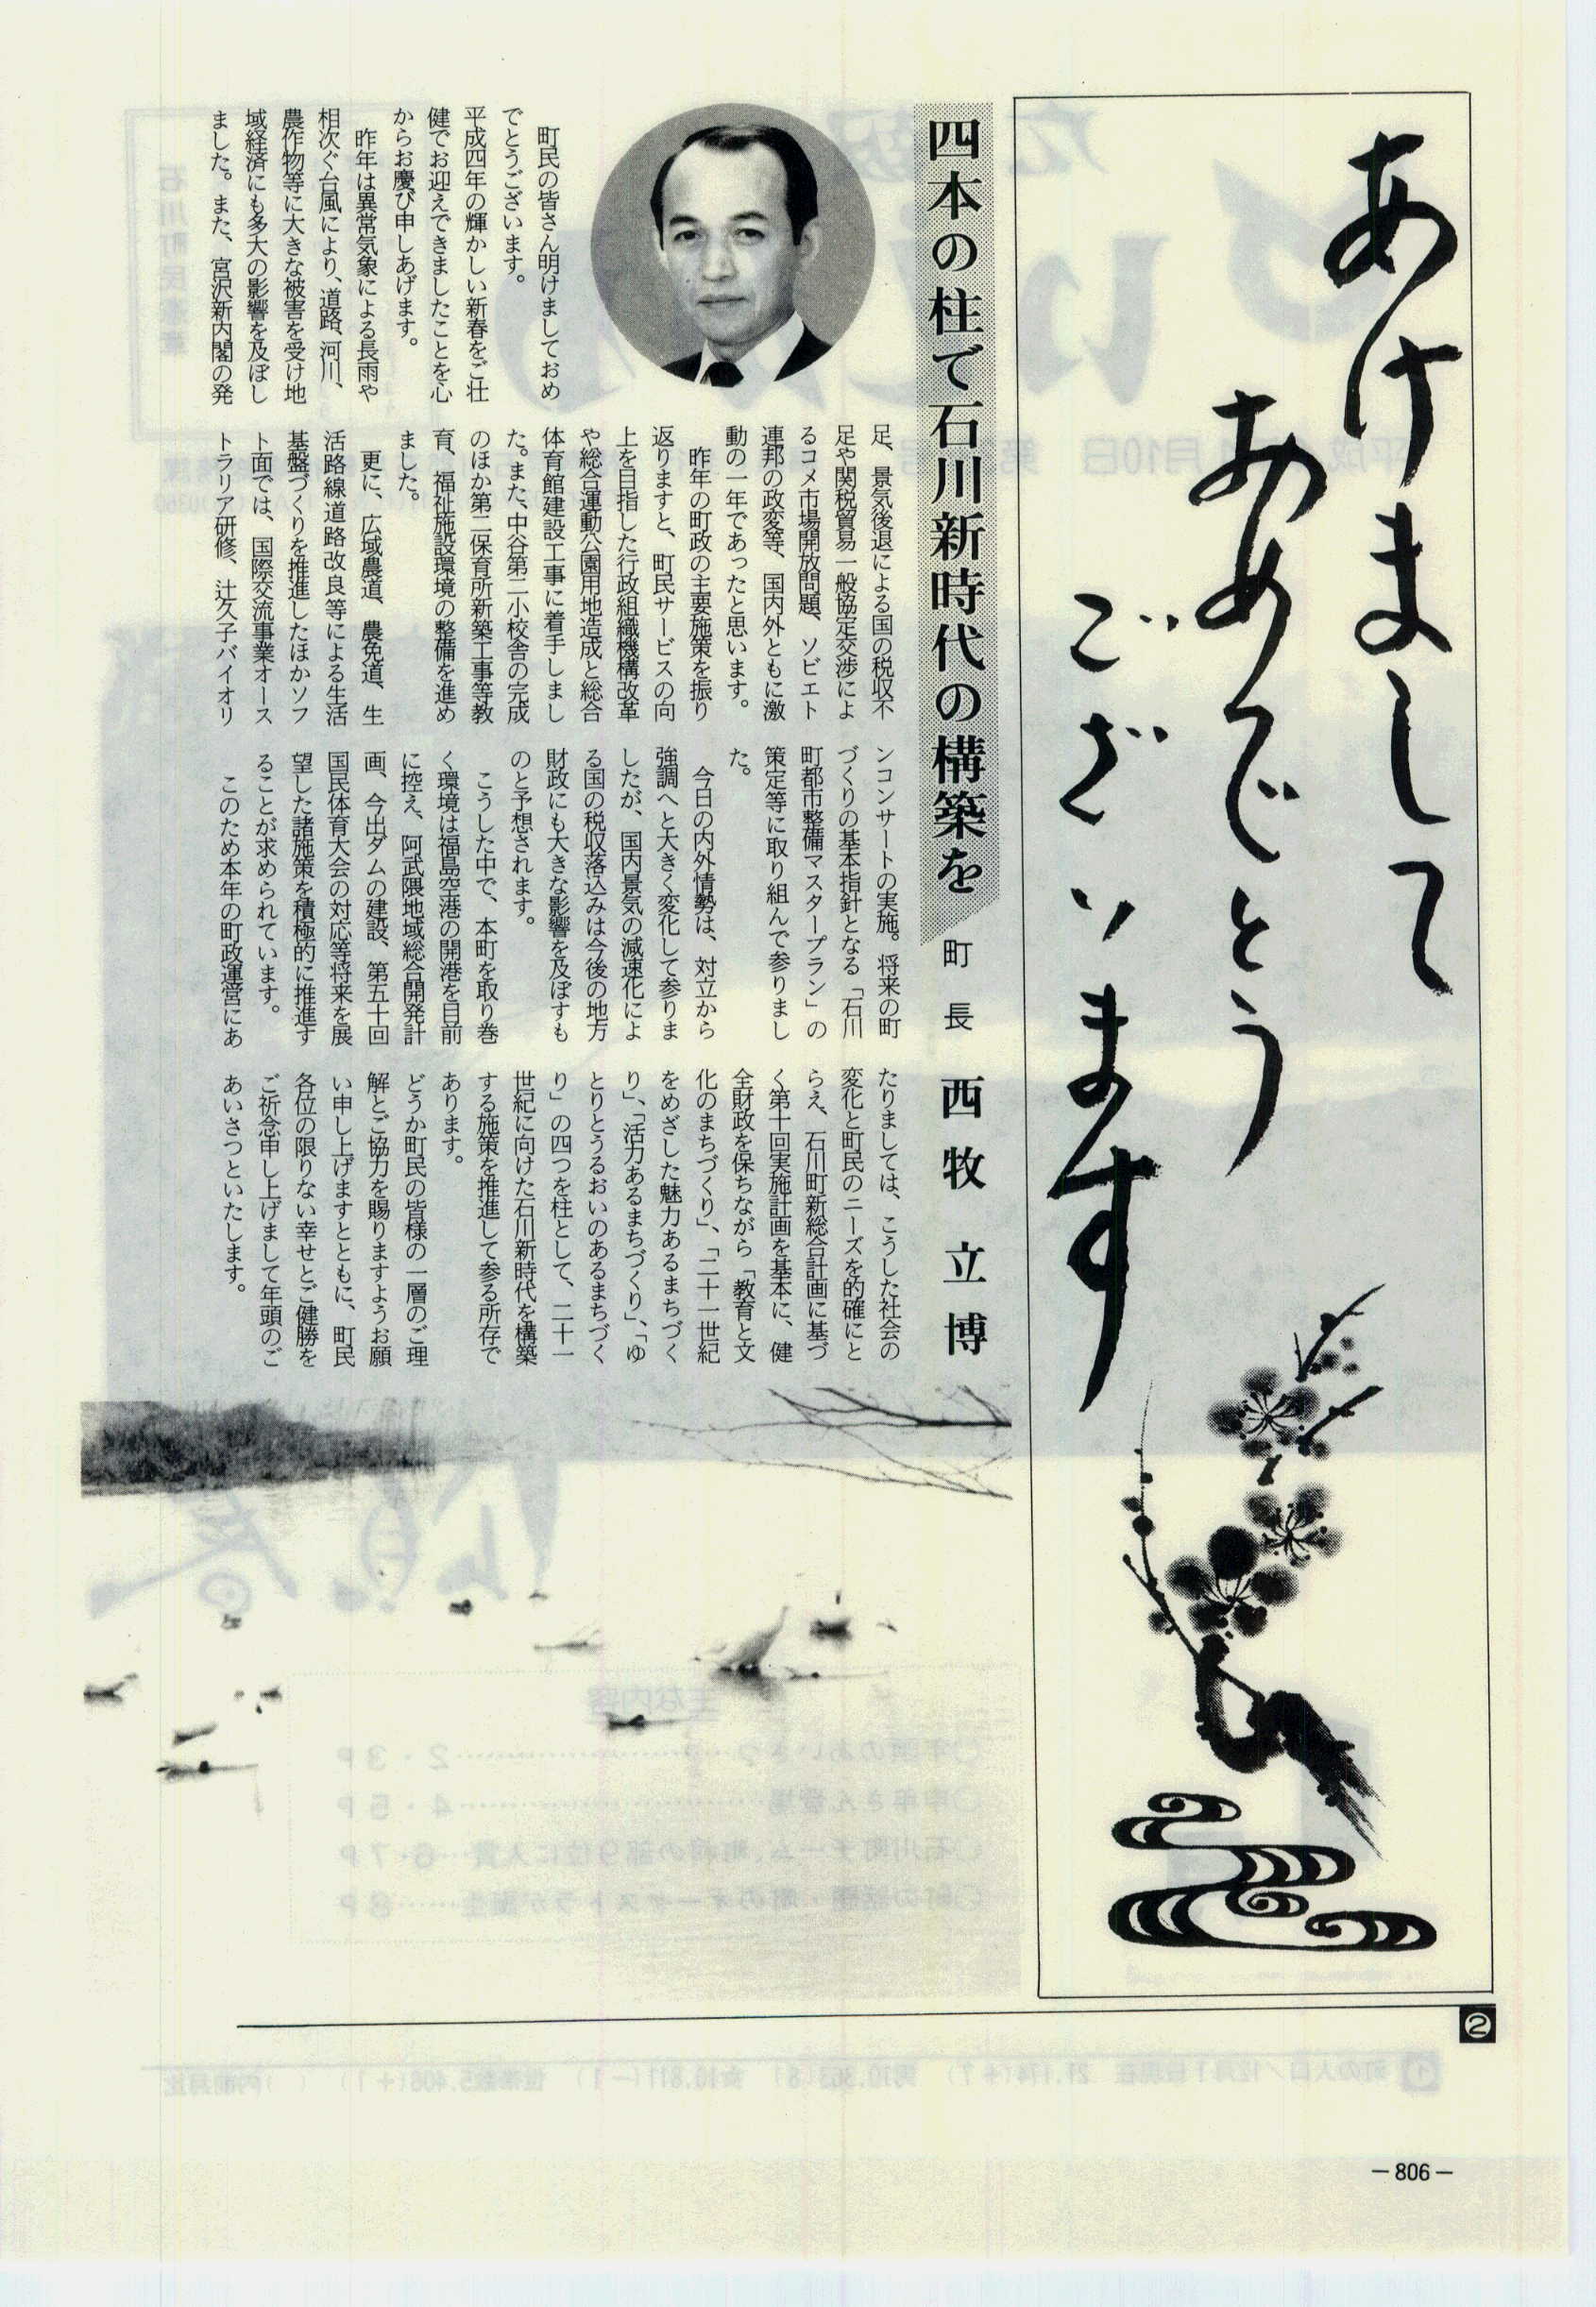 あけまして
おめでとう
ございます
四本の柱で石川新時代の構築を
町長 西牧立博
町民の皆さん明けましておめ
でとうございます。
平成四年の輝かしい新春をご壮
健でお迎えできましたことを心
からお慶び申しあげます。
昨年は異常気象による長雨や
相次ぐ台風により、道路、河川、
農作物等に大きな被害を受け地
域経済にも多大の影響を及ぼし
ました。また、宮沢新内閣の発
足、景気後退による国の税収不
足や関税貿易一般協定交渉によ
るコメ市場開放問題、ソビエト
連邦の政変等、国内外ともに激
動の一年であったと思います。
昨年の町政の主要施策を振り
返りますと、町民サービスの向
上を目指した行政組織機構改革
や総合運動公園用地造成と総合
体育館建設工事に着手しまし
た。また、中谷第二小校舎の完成
のほか第二保育所新築工事等教
育、福祉施設環境の整備を進め
ました。
更に、広域農道、農免道、生
活路線道路改良等による生活
基盤づくりを推進したほかソフ
ト面では、国際交流事業オース
トラリア研修、辻久子バイオリ
ンコンサートの実施。将来の町
づくりの基本指針となる「石川
町都市整備マスタープラン」の
策定等に取り組んで参りまし
た。
今日の内外情勢は、対立から
強調へと大きく変化して参りま
したが、国内景気の減速化によ
る国の税収落込みは今後の地方
財政にも大きな影響を及ぼすも
のと予想されます。
こうした中で、本町を取り巻
く環境は福島空港の開港を目前
に控え、阿武隈地域総合開発計
画、今出ダムの建設、第五十回
国民体育大会の対応等将来を展
望した諸施策を積極的に推進す
ることが求められています。
このため本年の町政運営にあ
たりましては、こうした社会の
変化と町民のニーズを的確にと
らえ、石川町新総合計画に基づ
く第十回実施計画を基本に、健
全財政を保ちながら「教育と文
化のまちづくり」、「二十一世紀
をめざした魅力あるまちづく
り」、「活力あるまちづくり」、「ゆ
とりとうるおいのあるまちづく
り」の四つを柱として、二十一
世紀に向けた石川新時代を構築
する施策を推進して参る所存で
あります。
どうか町民の皆様の一層のご理
解とご協力を賜りますようお願
い申し上げますとともに、町民
各位の限りない幸せとご健勝を
ご祈念申し上げまして年頭のご
あいさつといたします。
②
－806－